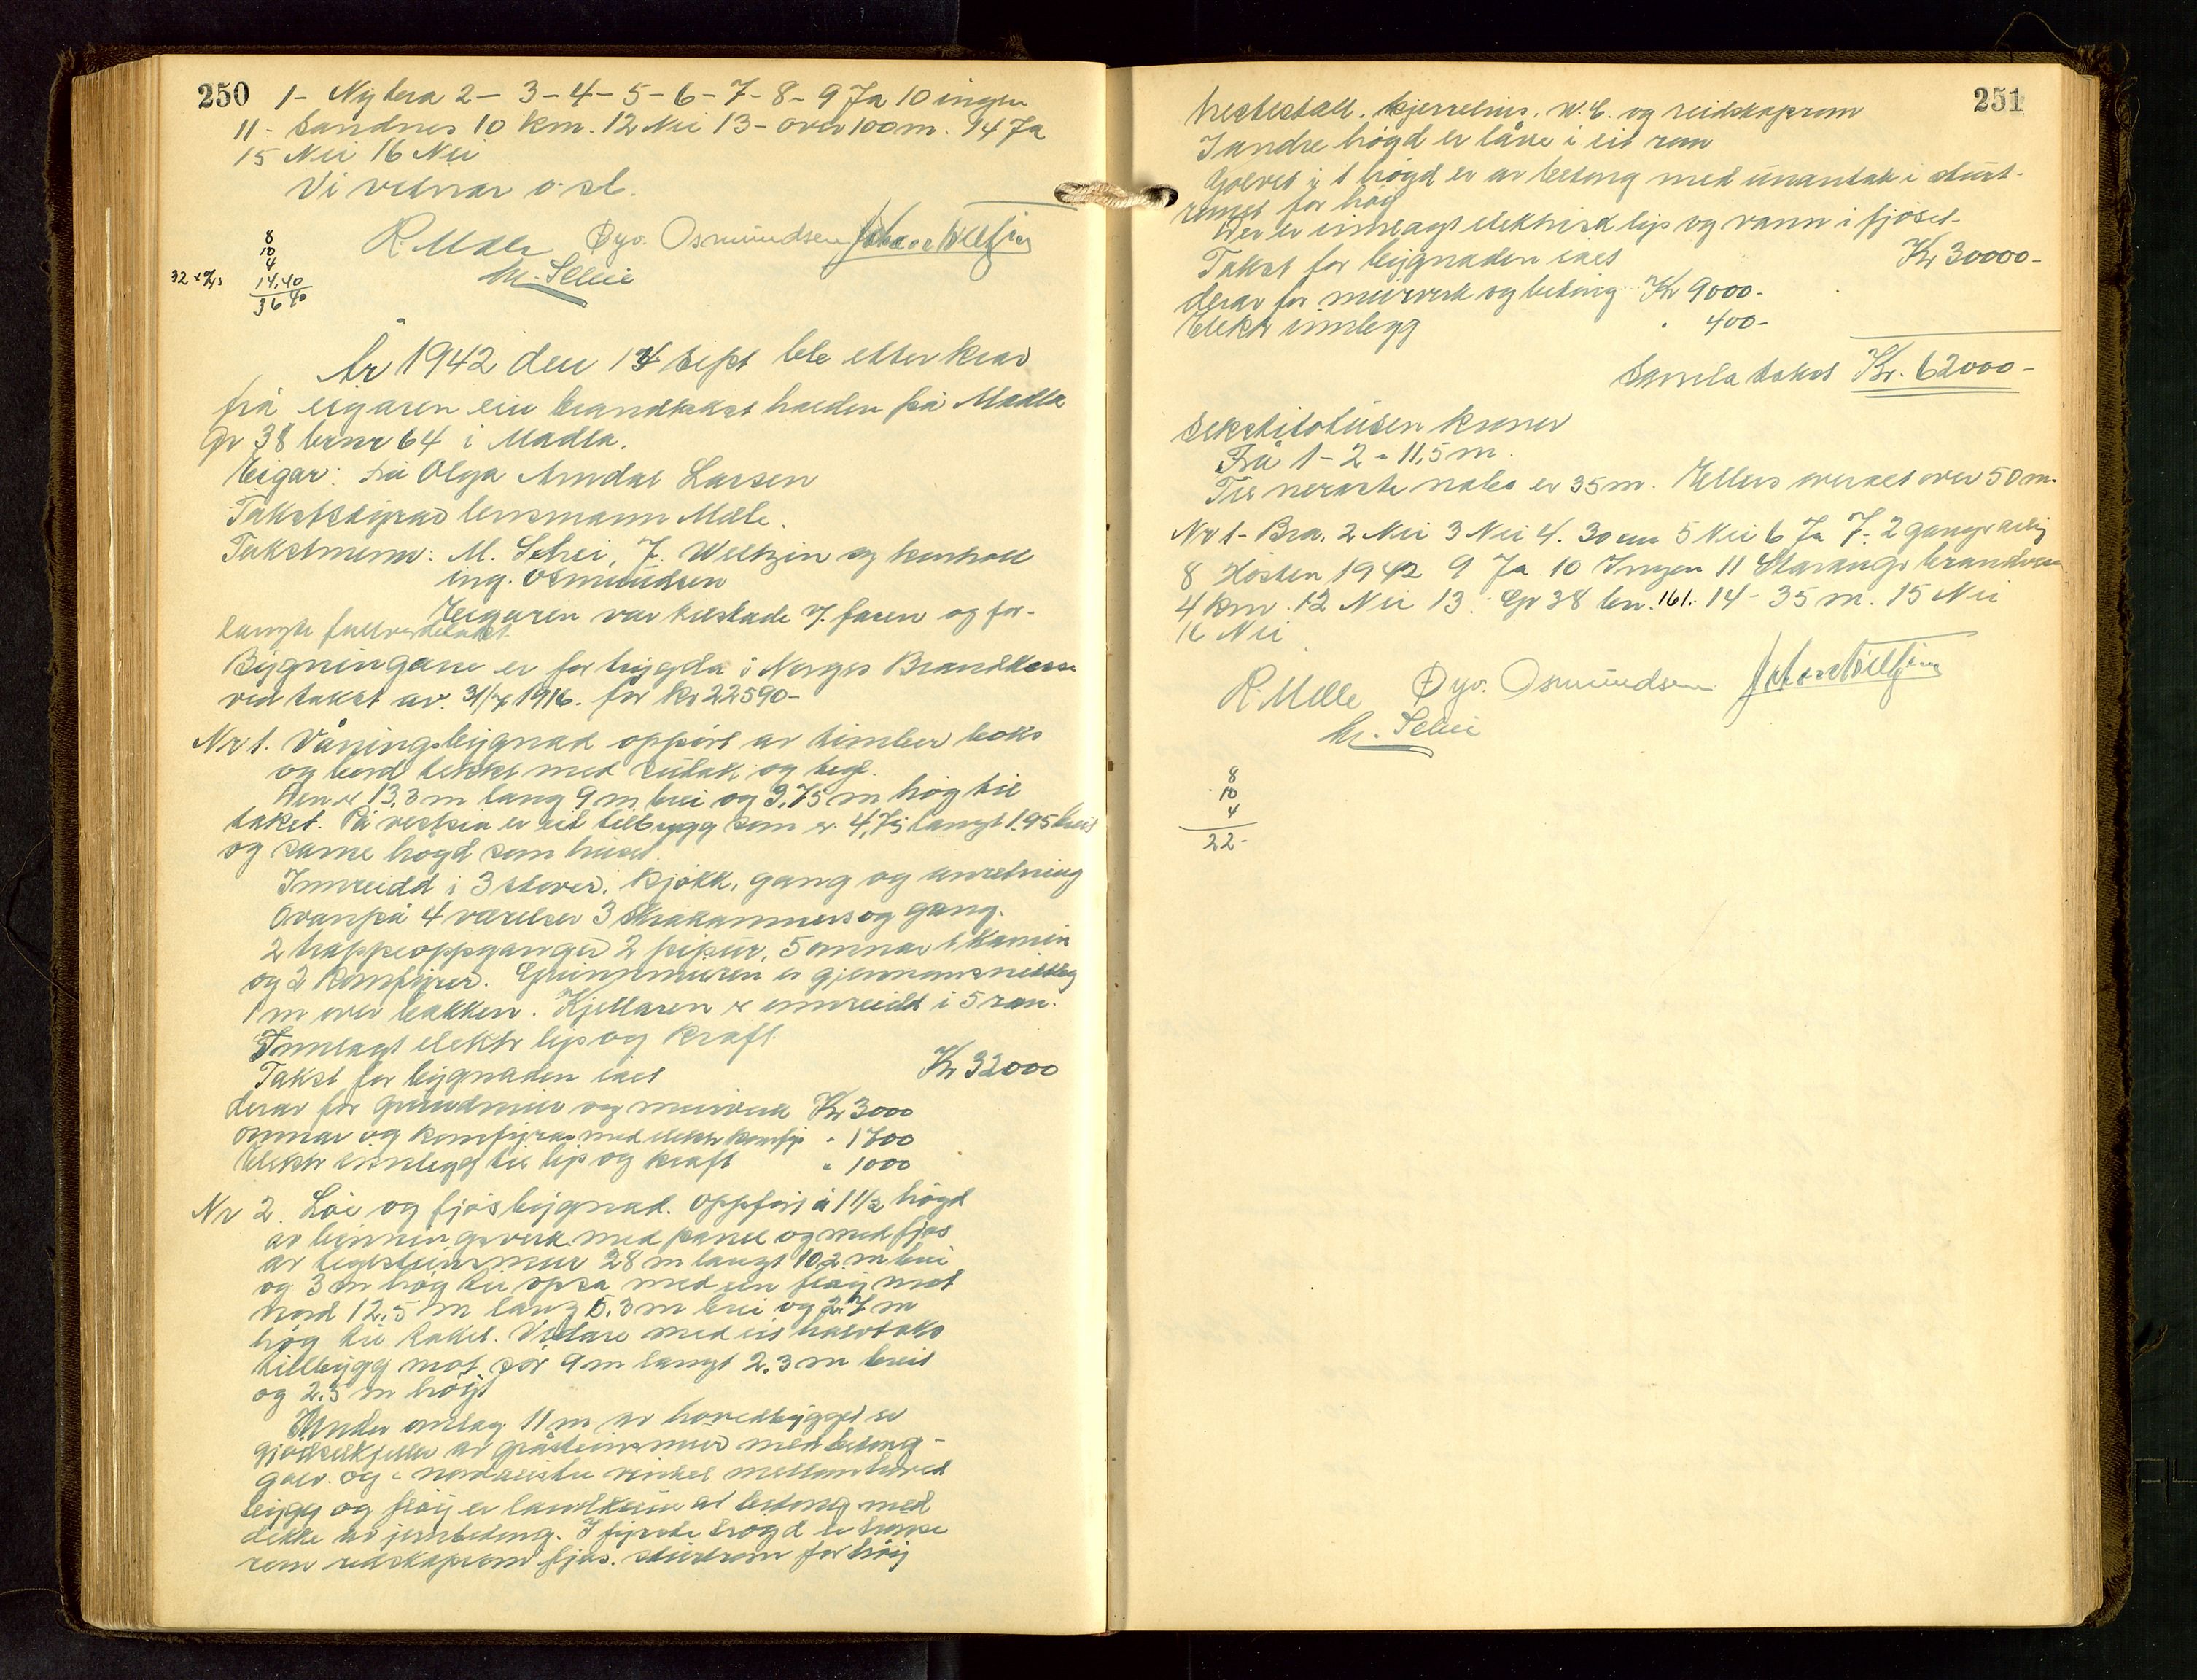 250
1- Nybera 2- 3-4-5-6-7-8-9 Ja 10 ingen
11- Sandnes 10 km. 12 Nei 13- over 100 m. 14 Ja
15 Nei 16 Nei
Vi vitnar o. sl.
R. Melle Øyv. Osmundsen
M. Selei
8
10
4
14,40
36 40
År 1942 den 14 sept ble etter krav
frå eigaren ein brandtakst halden på Madla
Gr 38 brnr 64 i Madla.
Eigar: frå Olga Arndal Larsen
Takststyrar lensmann Melle.
Takstmenn: M. Selei, J. Weltzin og kontroll
ing. Osmundsen
Eigaren var tilstade v/ faren og for-
langte fullverditakst.
Bygningane er for trygda i Norges Brandkasse
ved takst av. 31/7 1916. for kr 22590-
Nr 1. Våningsbygnad oppført av timber boks
og bord tekkt med sutak og tegl.
Den er 13,3 m lang 9 m brei og 3,75 m høg til
taket. På vestsia er eit tilbygg som er 4,75 langt 1.95 breit
og same høgd som huset.
Innreidd i 3 stover, kjøkk, gang og anretning
Ovanpå 4 værelser 3 skrakammers og gang.
2 trappeoppganger 2 pipur, 5 omnar 1 Kamin
og 2 komfyrer. Grunnmuren er gjennomsnittleg
1 m over bakken. Kjellaren er innreidt i 5 rom.
Innlagt elektr lys og kraft.
Takst for bygnaden sæt Kr 32000
derav for grundmur og murverk Kr 3000
omnar og komfyrar med elektr komfyr " 1700
Elektr innlegg til lys og kraft " 1000
Nr 2. Løe og fjøsbygnad. oppført i 1 1/2 høgd
av binningsverk med panel og med fjøs
av teglsteinsmur 28 m langt 10,2 m brei
og 3 m høg til opsa med ein fløy mot
nord 12,5 m lang 5.3 m brei og 2.7 m
høg til taket. Vidare med eit halvtaks
tillbygg mot sør 9 m langt 2.3 m breit
og 2.5 m høgt
Under omlag 11 m av hovedbygget er
gjødselkjeller av gråsteinsmur med betong-
golv. og i nordaustre vinkel mellom hoved
bygg og fløy er landkum av betong med
dekke av jernbetong. I fyrste høgd er
rom redskapsrom fjøs. stuertrom for høy
251
hestestall. kjerrehus. W.C. og reidskapsrom
I andre høgd er låve i eit rom
Golvet i 1 høgd er av betong med unantak i stuert-
romet for høy
Der er innlagt elektrisk lys og vann i fjøset
Takst for bygnaden sæt Kr 30000-
derav for murverk og betong Kr 9000-
Elektr innlegg " 400-
Samla takst Kr. 62000-
Sekstitotusen kroner
Frå 1-2 = 11,5 m.
Til næraste nabo er 35 m. Ellers overalt over 50 m.
Nr 1- Bra. 2 Nei 3 Nei 4. 30 cm 5 Nei 6 Ja 7- 2 gangr årlig
8 Høsten 1942 9 Ja 10 Ingen 11 Stavangr brandvesen
4 km. 12 Nei 13. Gr 38 bn. 161. 14- 35 m. 15 Nei
16 Nei
R. Melle Øyv. Osmundsen
M. Selei
8
10
4
22-